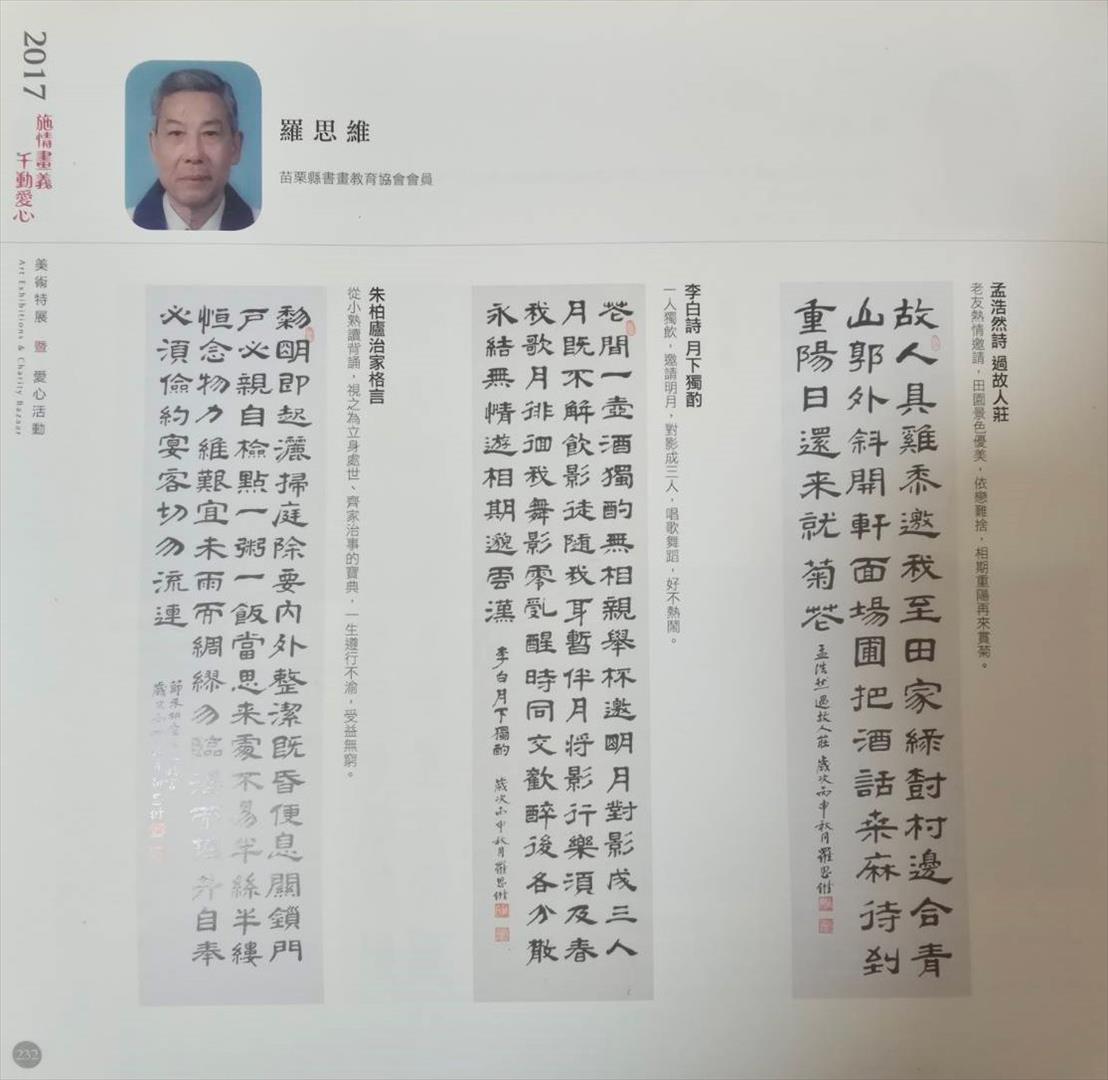 2017
施情畫義
千動愛心
美術特展 暨 愛心活動
Art Exhibitions & Charity Bazaar
羅思維
苗栗縣書畫教育協會會員
孟浩然詩 過故人莊
老友熱情邀請，田園景色優美，依戀難捨，相期重陽再來賞菊。
故人具雞黍邀我至田家綠樹村邊合青
山郭外斜開軒面場圃把酒話桑麻待到
重陽日還来就菊花
孟浩然過故人莊 歲次丙申秋月羅思維
李白詩 月下獨酌
一人獨飲，邀請明月，對影成三人，唱歌舞蹈，好不熱鬧。
花間一壺酒獨酌無相親舉杯邀明月對影成三人
月既不解飲影徒隨我身暫伴月將影行樂須及春
我歌月徘徊我舞影零亂醒時同交歡醉後各分散
永結無情遊相期邈雲漢
李白月下獨酌 歲次丙申秋月羅思維
朱柏廬治家格言
從小熟讀背誦，視之為立身處世、齊家治事的寶典，一生遵行不渝，受益無窮。
黎明即起灑掃庭除要內外整潔既昏便息關鎖門
戶必親自檢點一粥一飯當思来處不易半絲半縷
恒念物力維艱宜未雨而綢繆勿臨渴而掘井自奉
必須儉約宴客切勿流連
232